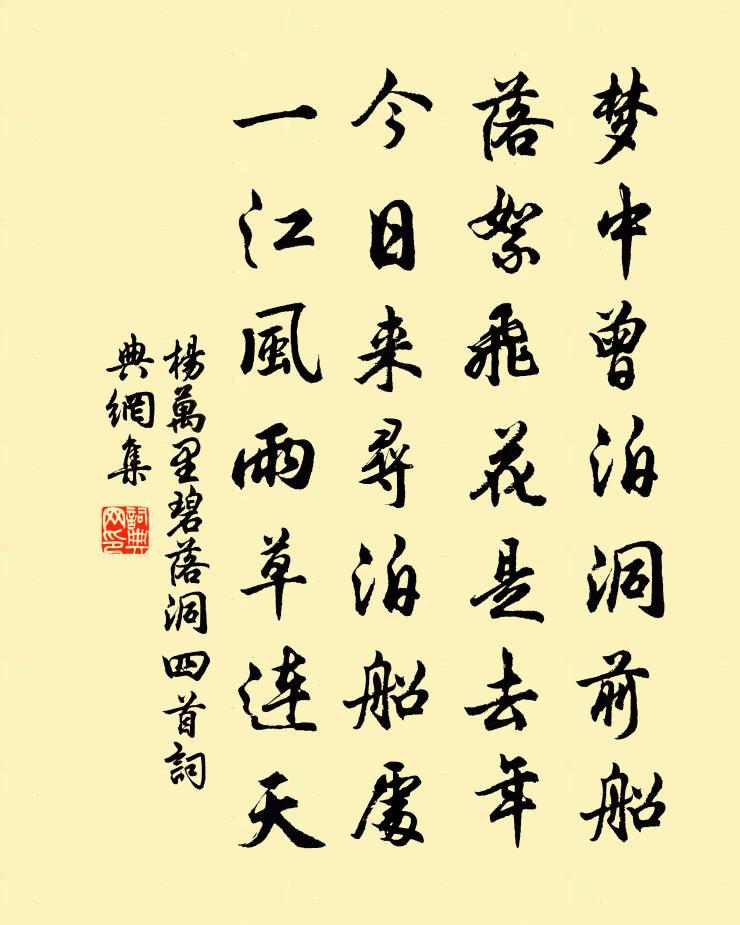 梦中曾泊洞前船
落絮飛花是去年
今日来尋泊船處
一江風雨草連天
楊萬里碧落洞四首詞
典網集
詞典網印